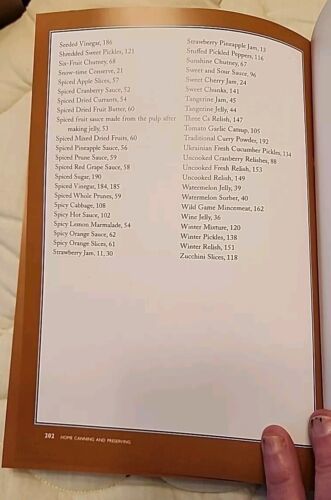 Seeded Vinegar, 186
Shredded Sweet Pickles, 121
Six-Fruit Chutney, 68
Snow-time Conserve, 21
Spiced Apple Slices, 57
Spiced Cranberry Sauce, 52
Spiced Dried Currants, 54
Spiced Dried Fruit Butter, 60
Spiced fruit sauce made from the pulp after
making jelly, 53
Spiced Mixed Dried Fruits, 60
Spiced Pineapple Sauce, 56
Spiced Prune Sauce, 59
Spiced Red Grape Sauce, 58
Spiced Sugar, 190
Spiced Vinegar, 184, 185
Spiced Whole Prunes, 59
Spicy Cabbage, 108
Spicy Hot Sauce, 102
Spicy Lemon Marmalade, 54
Spicy Orange Sauce, 62
Spicy Orange Slices, 61
Strawberry Jam, 11, 30
Strawberry Pineapple Jam, 13
Stuffed Pickled Peppers, 116
Sunshine Chutney, 67
Sweet and Sour Sauce, 96
Sweet Cherry Jam, 24
Sweet Chunks, 141
Tangerine Jam, 45
Tangerine Jelly, 44
Three Cs Relish, 147
Tomato Garlic Catsup, 105
Traditional Curry Powder, 192
Ukrainian Fresh Cucumber Pickles, 134
Uncooked Cranberry Relishes, 88
Uncooked Fresh Relish, 153
Uncooked Relish, 149
Watermelon Jelly, 39
Watermelon Sorbet, 40
Wild Game Mincemeat, 162
Wine Jelly, 36
Winter Mixture, 120
Winter Pickles, 138
Winter Relish, 151
Zucchini Slices, 118
202 HOME CANNING AND PRESERVING